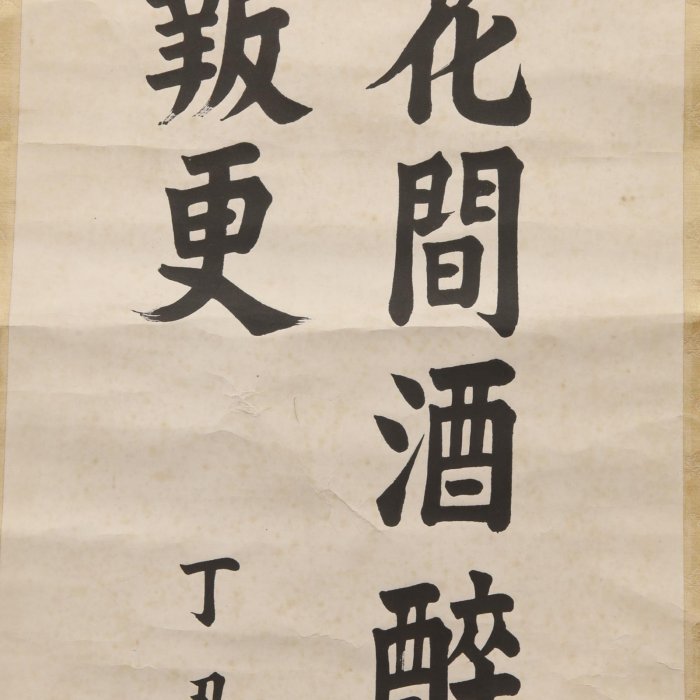 花間酒醉
報更
丁丑